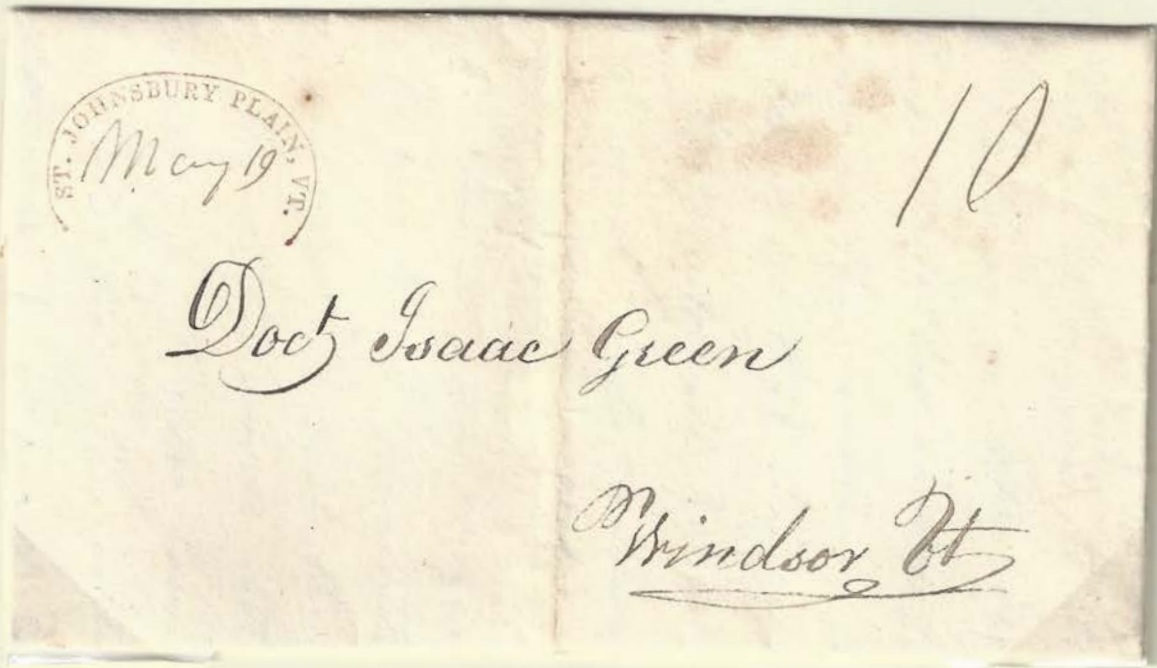 ST. JOHNSBURY PLAIN, VT.
May 19
10
Doct Isaac Green
Windsor Vt